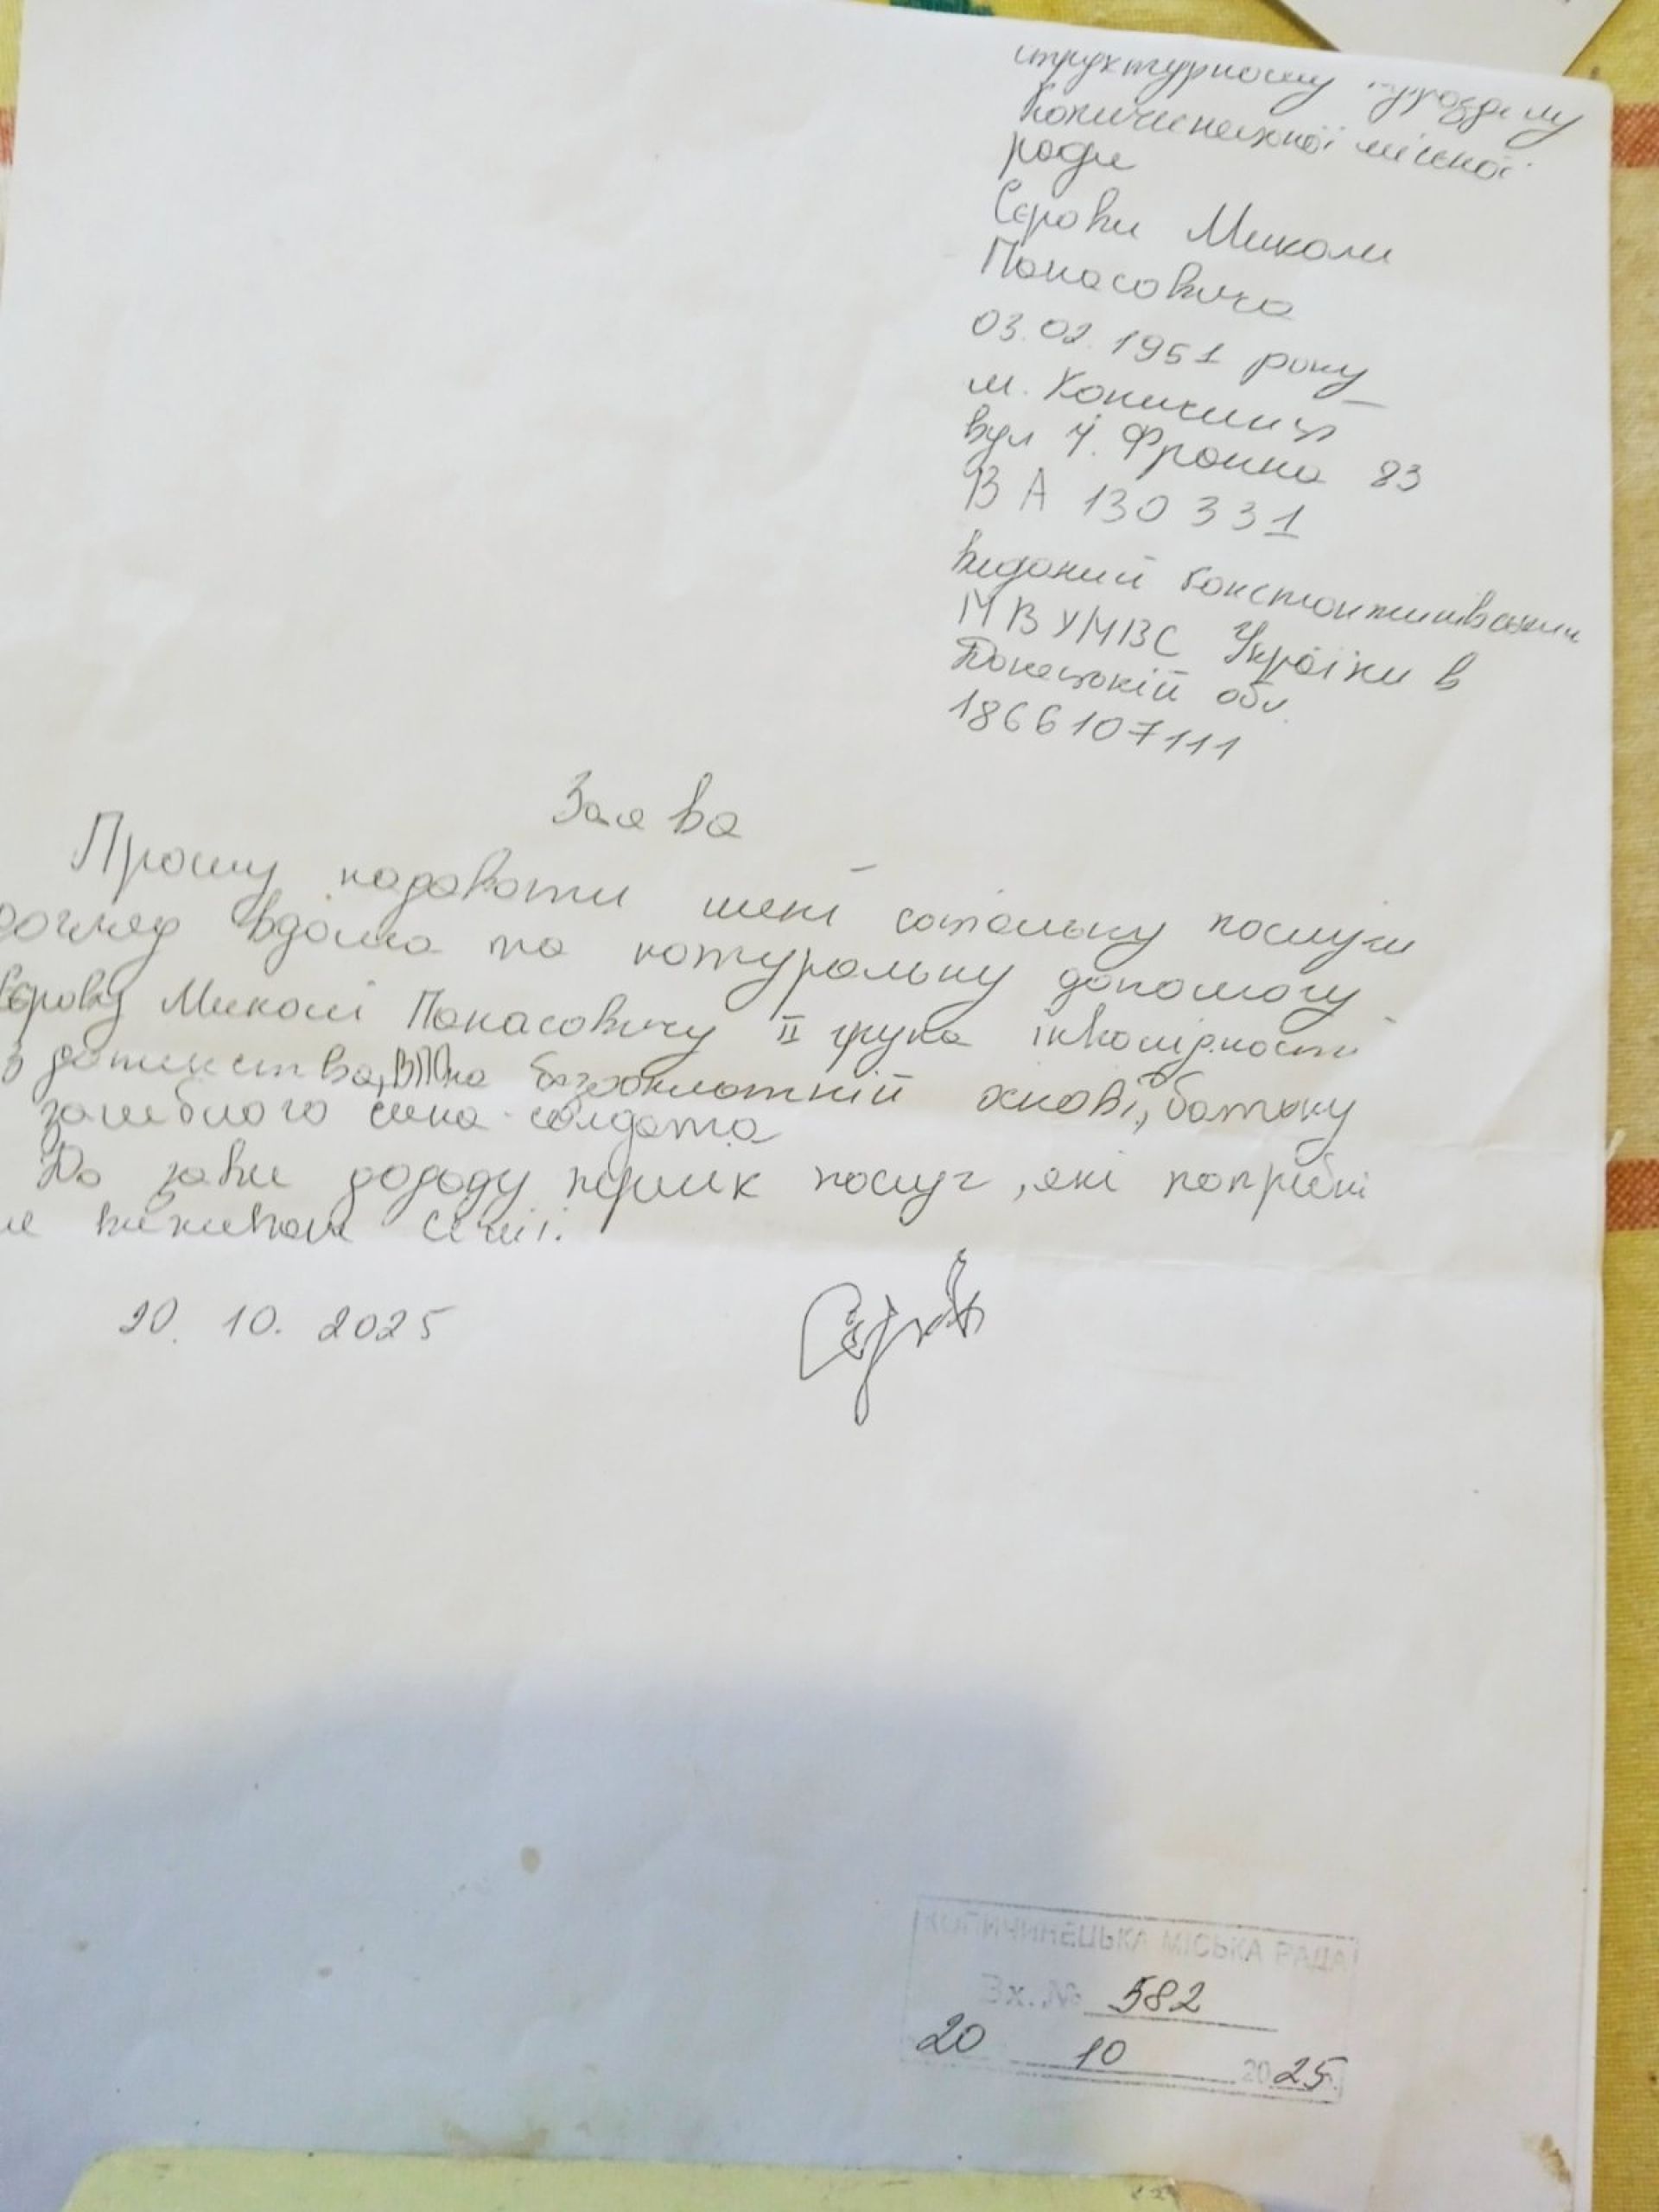 структурному підрозділу
Копичинецької міської
ради
Сєрови Миколи
Панасовича
03.02.1951 року
м. Копичинці
вул І. Франка 83
ВА 130331
виданий Константинівським
МВ УМВС України в
Донецькій обл.
1866107111
Заява
Прошу надавати мені соціальну послуги
догляд вдома та натуральну допомогу
Сєрову Миколі Панасовичу II група інвалідності
з дитинства, ВПО на безоплатній основі, батьку
загиблого сина-солдата
До заяви додаду перелік послуг, які потрібні
виживанні сім'ї.
20. 10. 2025
КОПИЧИНЕЦЬКА МІСЬКА РАДА
Вх. № 582
20 10 2025